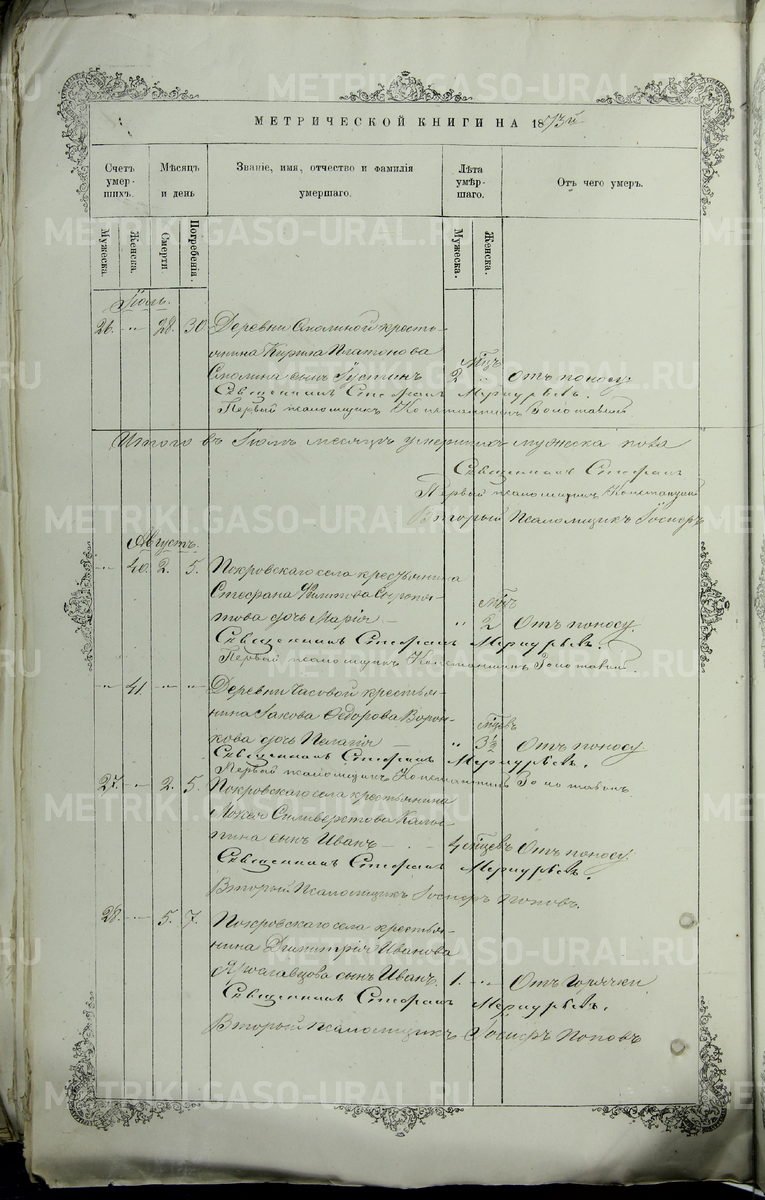 МЕТРИЧЕСКОЙ КНИГИ НА 1873й
Счетъ умер-шихъ.
Мѣсяцъ и день
Званіе, имя, отчество и фамилія умершаго.
Лѣта умер-шаго.
Отъ чего умеръ.
Мужеска.
Женска.
Смерти
Погребенія.
Мужеска.
Женска.
Іюль.
26. " 28. 30. Деревни Смолиной кресть-
янина Кирила Платонова
Смолина сынъ Іустинъ 2 мѣц " Отъ поносу.
Священникъ Стефанъ Меркурьевъ.
Первый псаломщикъ Константинъ
Итого въ Іюлѣ месяцѣ умершихъ мужеска пола
Священникъ Стефанъ
Первый псаломщикъ Константинъ
Вторый Псаломщикъ Іосифъ
Августъ.
" 40. 2. 5. Покровскаго села крестьянина
Стефана Филипова
дочь Марія " 2 мѣц Отъ поносу.
Священникъ Стефанъ Меркурьевъ.
Первый псаломщикъ Константинъ
" 41 " " Деревни Часовой крестья-
нина Іакова Ѳедорова Ворон-
кова дочь Пелагія " 3½ мѣцевъ Отъ поносу.
Священникъ Стефанъ Меркурьевъ.
Первый псаломщикъ Константинъ
27. " 2. 5. Покровскаго села крестьянина
Мокея Силиверстова
сынъ Иванъ 4 мѣцевъ Отъ поносу.
Священникъ Стефанъ Меркурьевъ.
Вторый Псаломщикъ Іосифъ Поповъ.
28. " 5. 7. Покровскаго села крестья-
нина Димитрія Иванова
Ярославцова сынъ Иванъ. 1. " Отъ Горячки.
Священникъ Стефанъ Меркурьевъ.
Вторый псаломщикъ Іосифъ Поповъ
METRIKI.GASO-URAL.RU